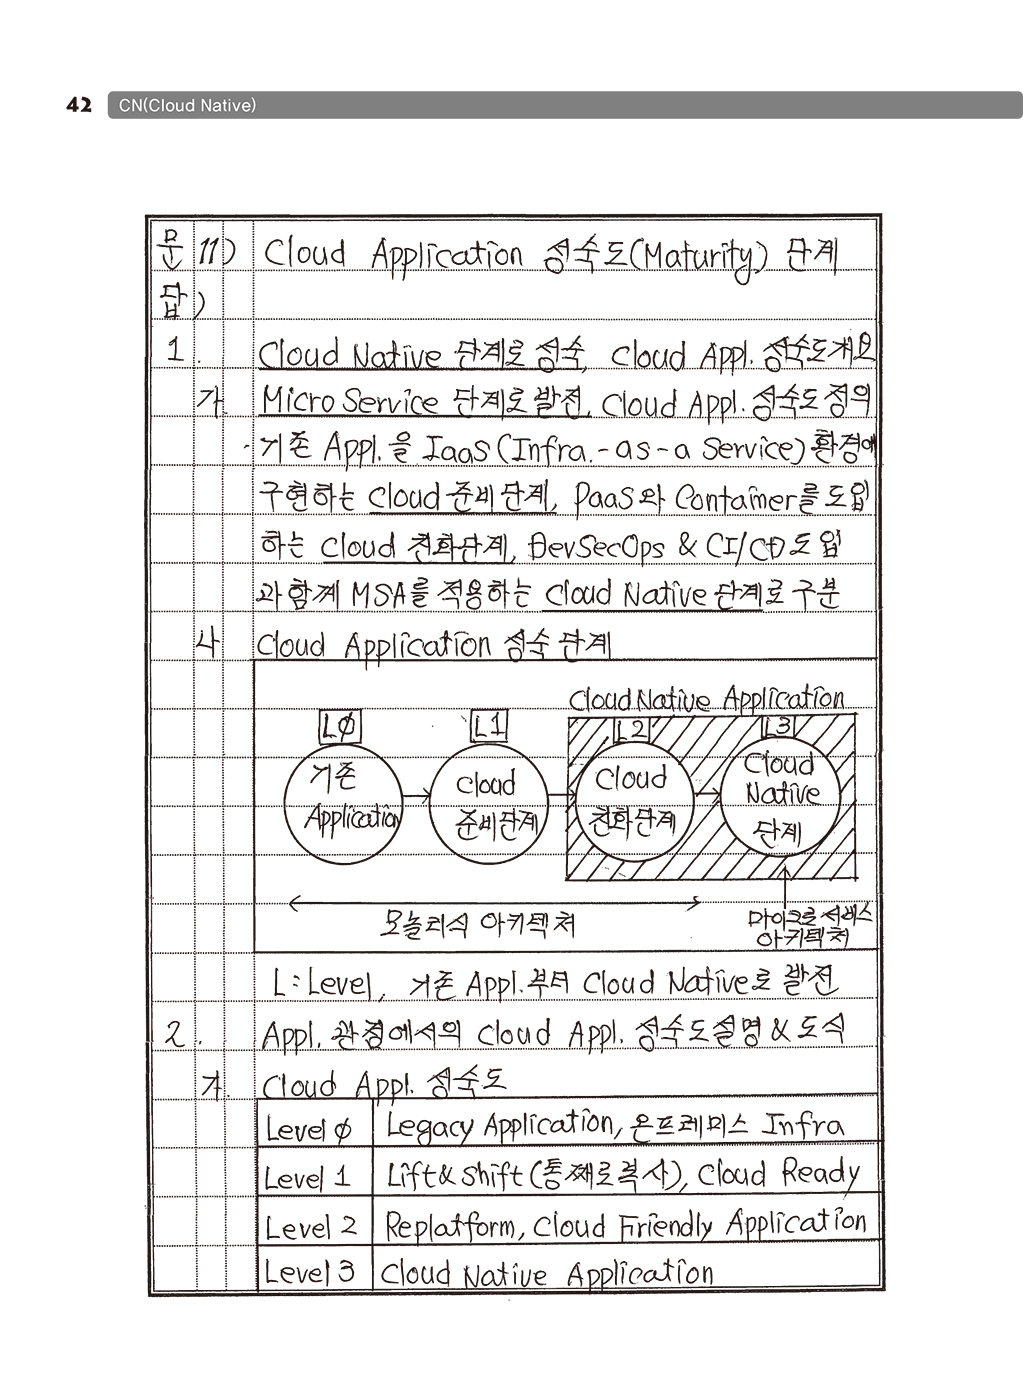 42 CN(Cloud Native)
문 11) Cloud Application 성숙도(Maturity) 단계
답)
1. Cloud Native 단계로 성숙, Cloud Appl. 성숙도개요
가. Micro Service 단계로 발전, Cloud Appl. 성숙도 정의
- 기존 Appl.을 IaaS(Infra.-as-a Service) 환경에
구현하는 Cloud 준비단계, PaaS와 Container를 도입
하는 Cloud 친화단계, DevSecOps & CI/CD 도입
과 함께 MSA를 적용하는 Cloud Native 단계로 구분
나. Cloud Application 성숙 단계
Cloud Native Application
L0 L1 L2 L3
기존 Application
Cloud 준비단계
Cloud 친화단계
Cloud Native 단계
모놀리식 아키텍처
마이크로서비스
아키텍처
L:Level, 기존 Appl.부터 Cloud Native로 발전
2. Appl. 관점에서의 Cloud Appl. 성숙도설명 & 도식
가. Cloud Appl. 성숙도
Level 0 Legacy Application, 온프레미스 Infra
Level 1 Lift & Shift (통째로복사), Cloud Ready
Level 2 Replatform, Cloud Friendly Application
Level 3 Cloud Native Application